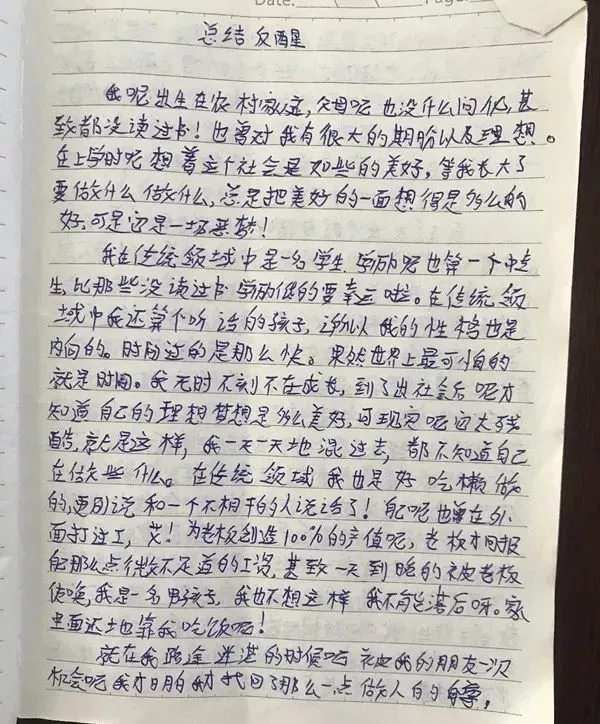 Date: Page:
总结 反醒
我呢出生在农村家庭,父母呢也没什么问化,甚
致都没读过书!也曾对我有很大的期盼以及理想。
在上学时呢想着这个社会是如些的美好,等我长大了
要做什么做什么,总是把美好的一面想得是多么的
好,可是这是一场恶梦!
我在传统领域中是一名学生,学历呢也算一个中专
生,比那些没读过书学历低的要幸运啦。在传统领
域中我还算个听话的孩子,所以我的性格也是
内向的。时间过的是那么快。果然世界上最可怕的
就是时间。我无时不刻不在成长,到了出社会后呢才
知道自己的理想梦想是多么美好,可现实呢这太残
酷,就是这样,我一天一天地混过去,都不知道自己
在做些什么。在传统领域我也是好吃懒做
的,更别说和一个不相干的人说话了!自己呢也曾在外
面打过工,艾!为老板创造100%的产值呢,老板才回报
那么点微不足道的工资,甚致一天到晚的被老板
使唤,我是一名男孩子,我也不想这样,我不能落后呀。家
里面还地靠我吃饭呢!
就在我路途迷湛的时候呢被我的朋友一次
机会呢我才明白我才找回了那么一点做人的自尊,